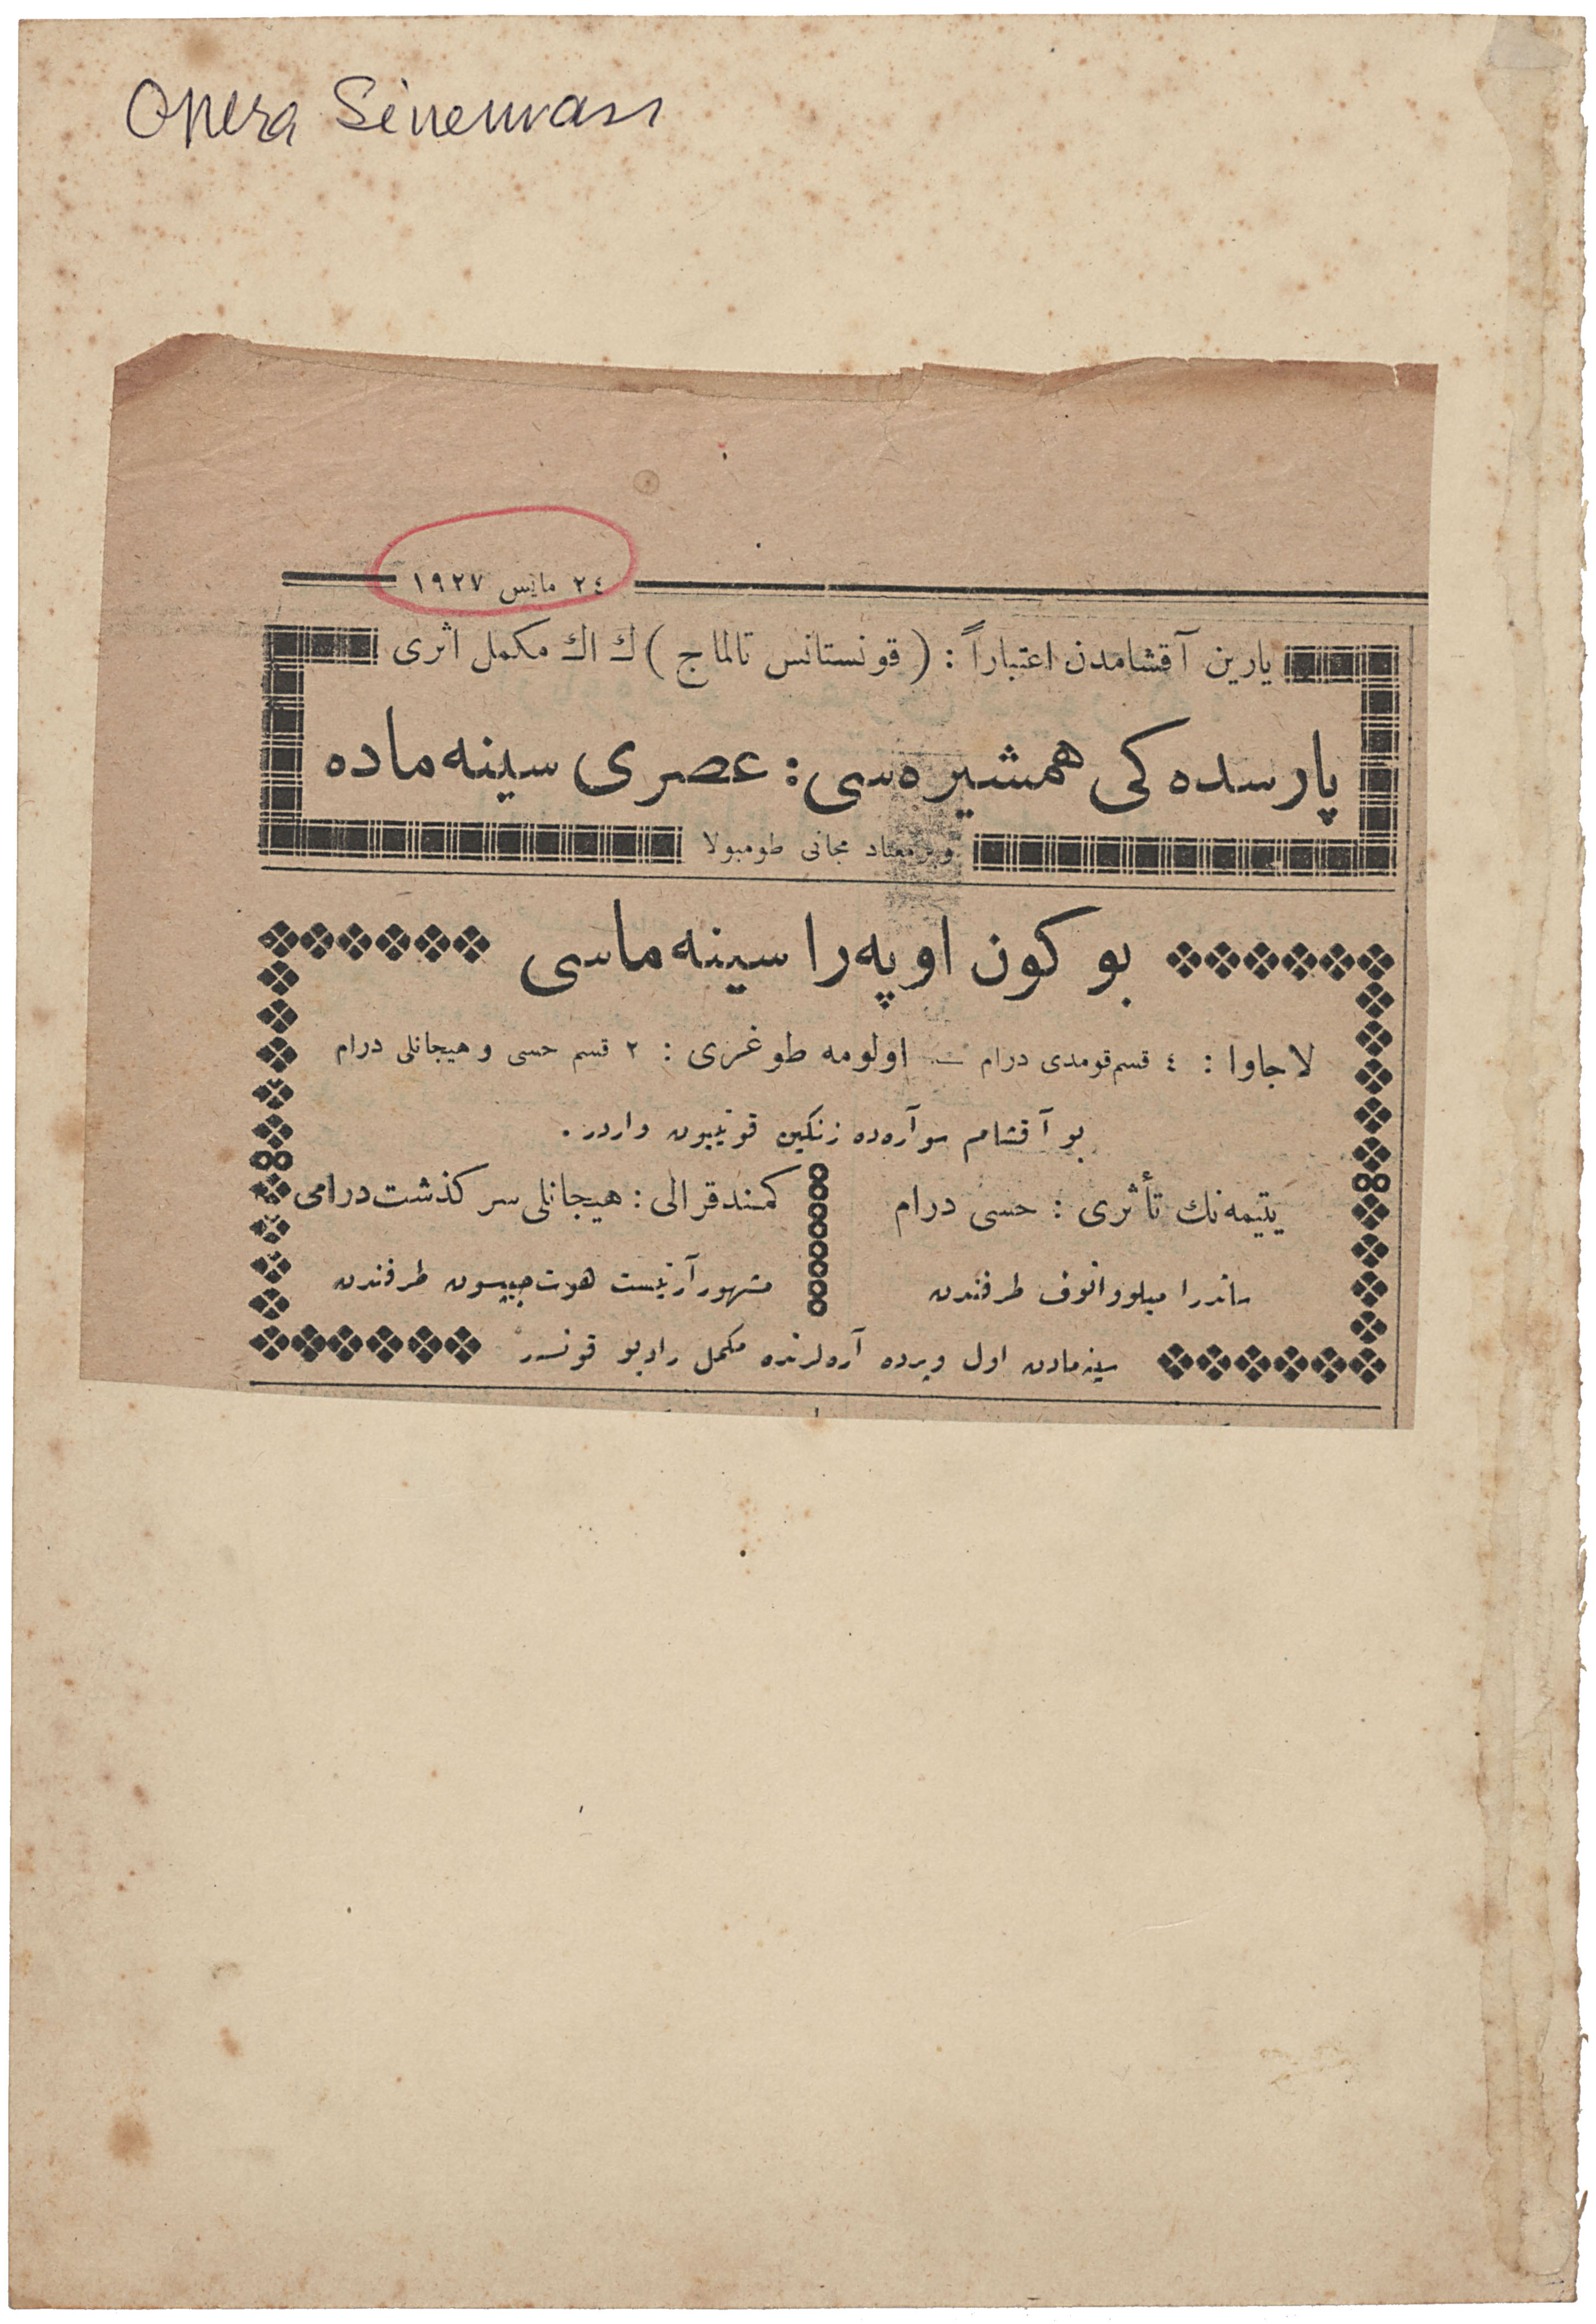 Opera Sineması
٢٤ مايس ١٩٢٧
يارين آقشامدن اعتباراً : ( قونستانس تالماج ) ك اك مكمل اثرى
پارسده كى همشيره‌سى : عصرى سينه‌ماده
وبر معتاد مجانى طومبولا
بو كون اوپه‌را سينه‌ماسى
لاجاوا : ٤ قسم قومدى درام — اولومه طوغرى : ٢ قسم حسى و هيجانلى درام
بو آقشام سوآره‌ده زنكين قوتييون واردر .
يتيمه‌نك تأثرى : حسى درام
ساندرا ميلووانوف طرفندن
كمند قرالى : هيجانلى سركذشت درامى
مشهور آرتيست هوت جيبسون طرفندن
سينه‌مادن اول وپرده آره‌لرنده مكمل راديو قونسر